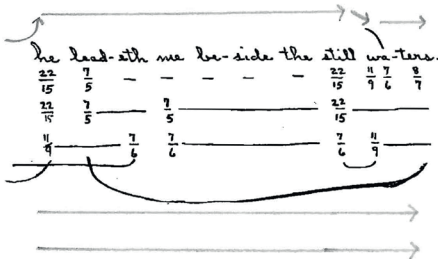 he lead-eth me be-side the still wa-ters.
22/15 7/5 – – – – – 22/15 11/9 7/6 8/7
22/15 7/5 — 7/5 — 22/15 —
11/9 — 7/6 7/6 — 7/6 11/9 —